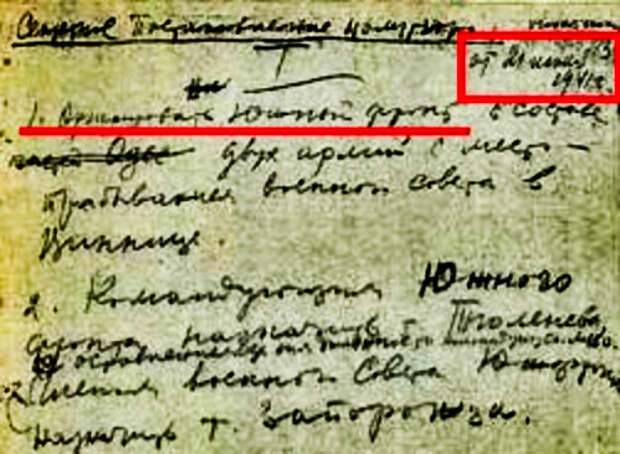 Секретно Постановление
от 21 июня
1941 г.
I
1. Организовать Южный фронт в составе
двух армий с место-
пребыванием военного совета в
Виннице.
2. Командующим Южного
фронта назначить Тюленева,
с оставлением
Членом военного Совета Южфронта
назначить т. Запорожца.